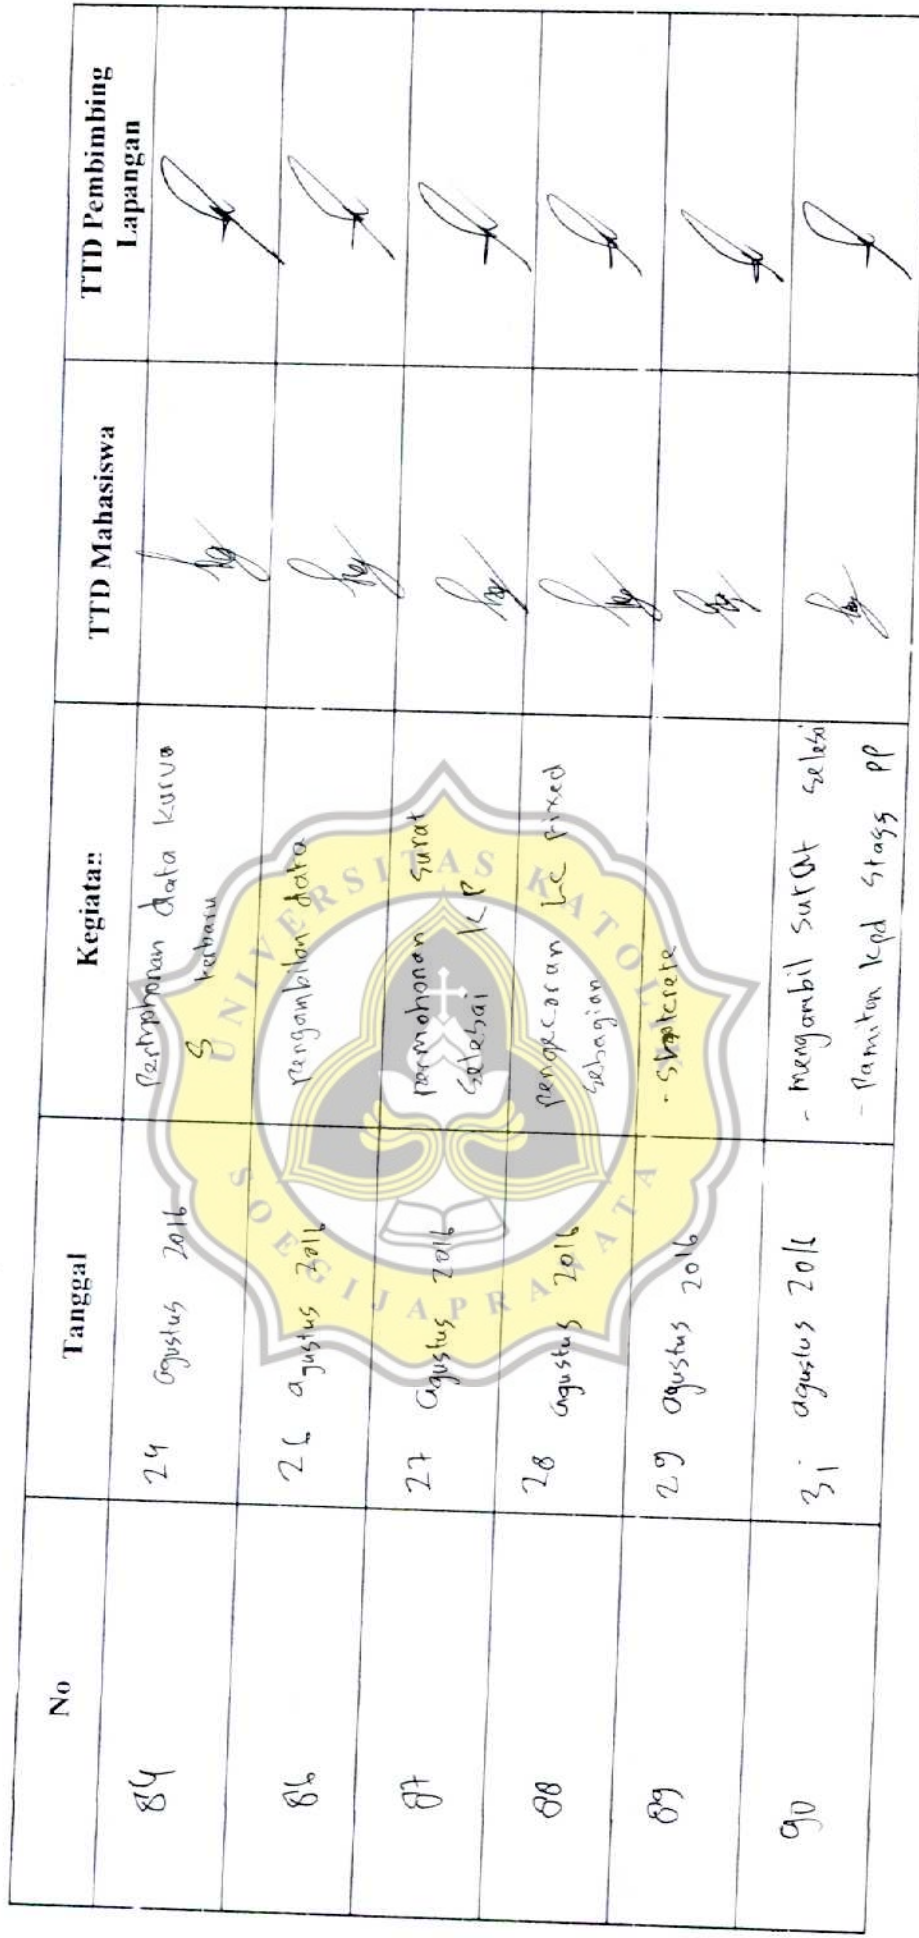 No Tanggal Kegiatan TTD Mahasiswa TTD Pembimbing
Lapangan
84 24 agustus 2016 Permohonan data kurva
S terbaru
86 26 agustus 2016 pengambilan data
87 27 agustus 2016 permohonan surat
selesai KP
88 28 agustus 2016 pengecoran LC fixed
sebagian
89 29 agustus 2016 - shotcrete
90 31 agustus 2016 - mengambil surat selesai
- Pamitan kpd staff PP
UNIVERSITAS KATOLIK
SOEGIJAPRANATA